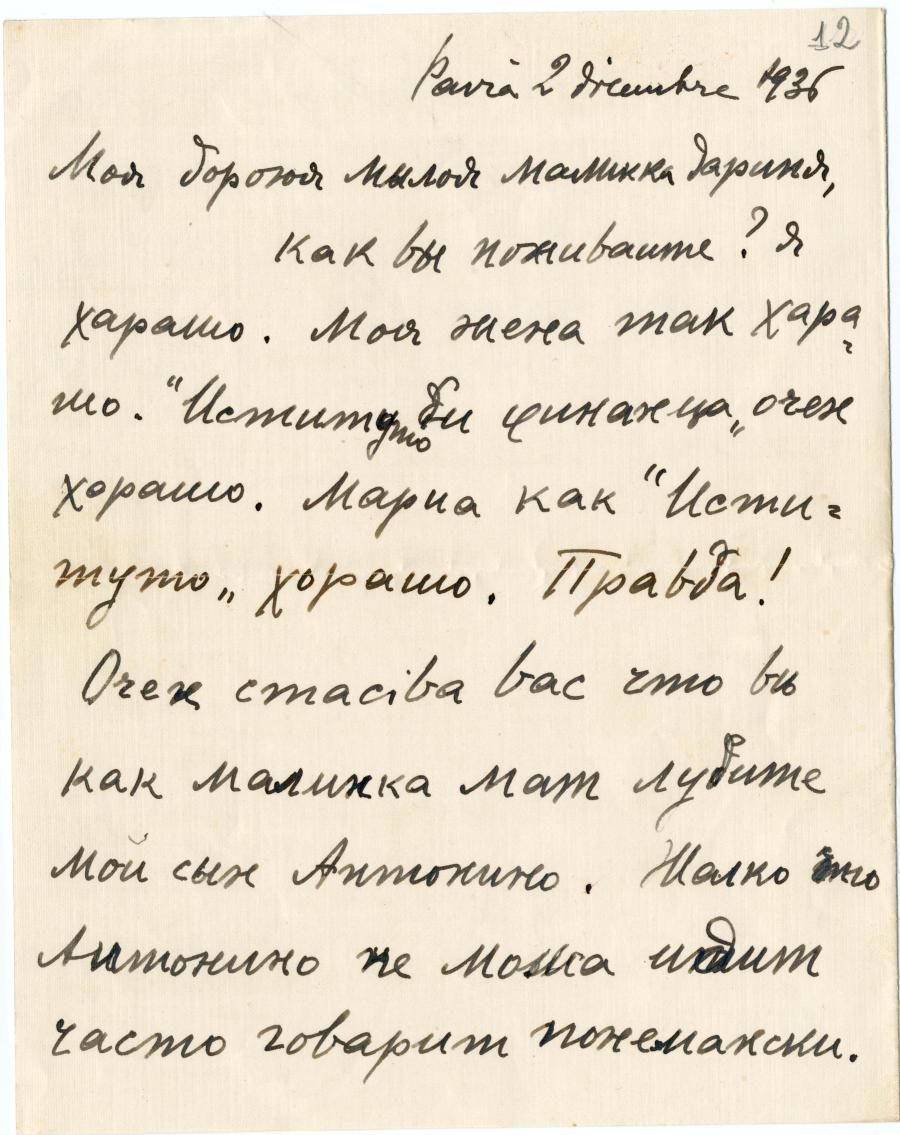 12
Pavia 2 dicembre 1936
Моя дорогая милая маминка Дариня,
как вы поживаите? я
харашо. Моя жена так хара-
шо. "Иститутто ди финанца„ очен
хорашо. Мариа как "Исти-
туто„ хорашо. Правда!
Очен спасiва вас что вы
как малинка мат лубите
мой сын Антонино. Жалко что
Антонино не можа
часто говарит понемански.